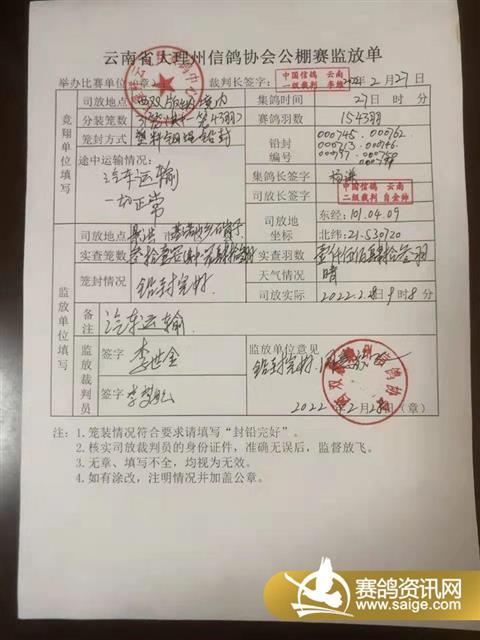 云南省大理州信鸽协会公棚赛监放单
举办比赛单位(章) 裁判长签字: 2022年2月27日
中国信鸽 云南
一级裁判 李维
竞翔单位填写
司放地点 西双版纳境内 集鸽时间 27日 时 分
分装笼数 司放羽数 1543羽
笼封方式 塑料 铅封 铅封编号 000745 000762
000713 000746
途中运输情况: 汽车运输
一切正常
集鸽长签字
司放长签字 中国信鸽 云南
二级裁判 自金帅
司放地坐标 东经: 101.04.09
北纬: 21.530720
监放单位填写
司放地点 景洪市
实查笼数 实查羽数 壹仟伍佰肆拾叁羽
笼封情况 铅封完好 天气情况 晴
司放实际 2022.2.28日9时8分
备注 汽车运输
监放裁判员 签字 李世金 监放单位意见
铅封完好.同意放飞
签字
2022年2月28日(章)
注: 1.笼装情况符合要求请填写“封铅完好”。
2.核实司放裁判员的身份证件,准确无误后,监督放飞。
3.无章、填写不全,均视为无效。
4.如有涂改,注明情况并加盖公章。
赛鸽资讯网
www.saige.com